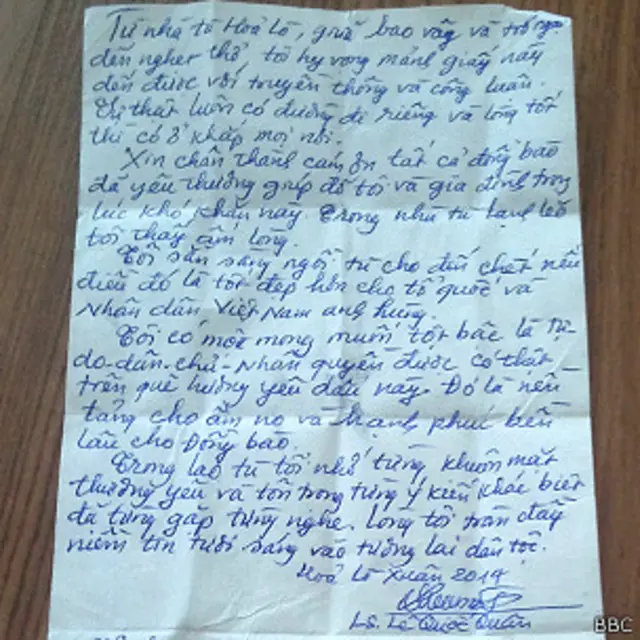 Từ nhà tù Hoả Lò, giữa bao vây và trở ngại
đến nghẹt thở tôi hy vọng mảnh giấy này
đến được với truyền thông và công luận.
Sự thật luôn có đường đi riêng và lòng tốt
thì có ở khắp mọi nơi.
Xin chân thành cám ơn tất cả đồng bào
đã yêu thương giúp đỡ tôi và gia đình trong
lúc khó khăn này. Trong nhà tù lạnh lẽo
tôi thấy ấm lòng.
Tôi sẵn sàng ngồi tù cho đến chết nếu
điều đó là tốt đẹp hơn cho tổ quốc và
Nhân dân Việt Nam anh hùng.
Tôi có một mong muốn tột bậc là Tự
do - dân - chủ - Nhân quyền được có thật
trên quê hương yêu dấu này. Đó là nền
tảng cho ấm no và hạnh phúc bền
lâu cho Đồng bào.
Trong lao tù tôi nhớ từng khuôn mặt
thương yêu và tôn trọng từng ý kiến khác biệt
đã từng gặp từng nghe. Lòng tôi tràn đầy
niềm tin tươi sáng vào tương lai dân tộc.
Hoả Lò Xuân 2014
LS. Lê Quốc Quân
BBC